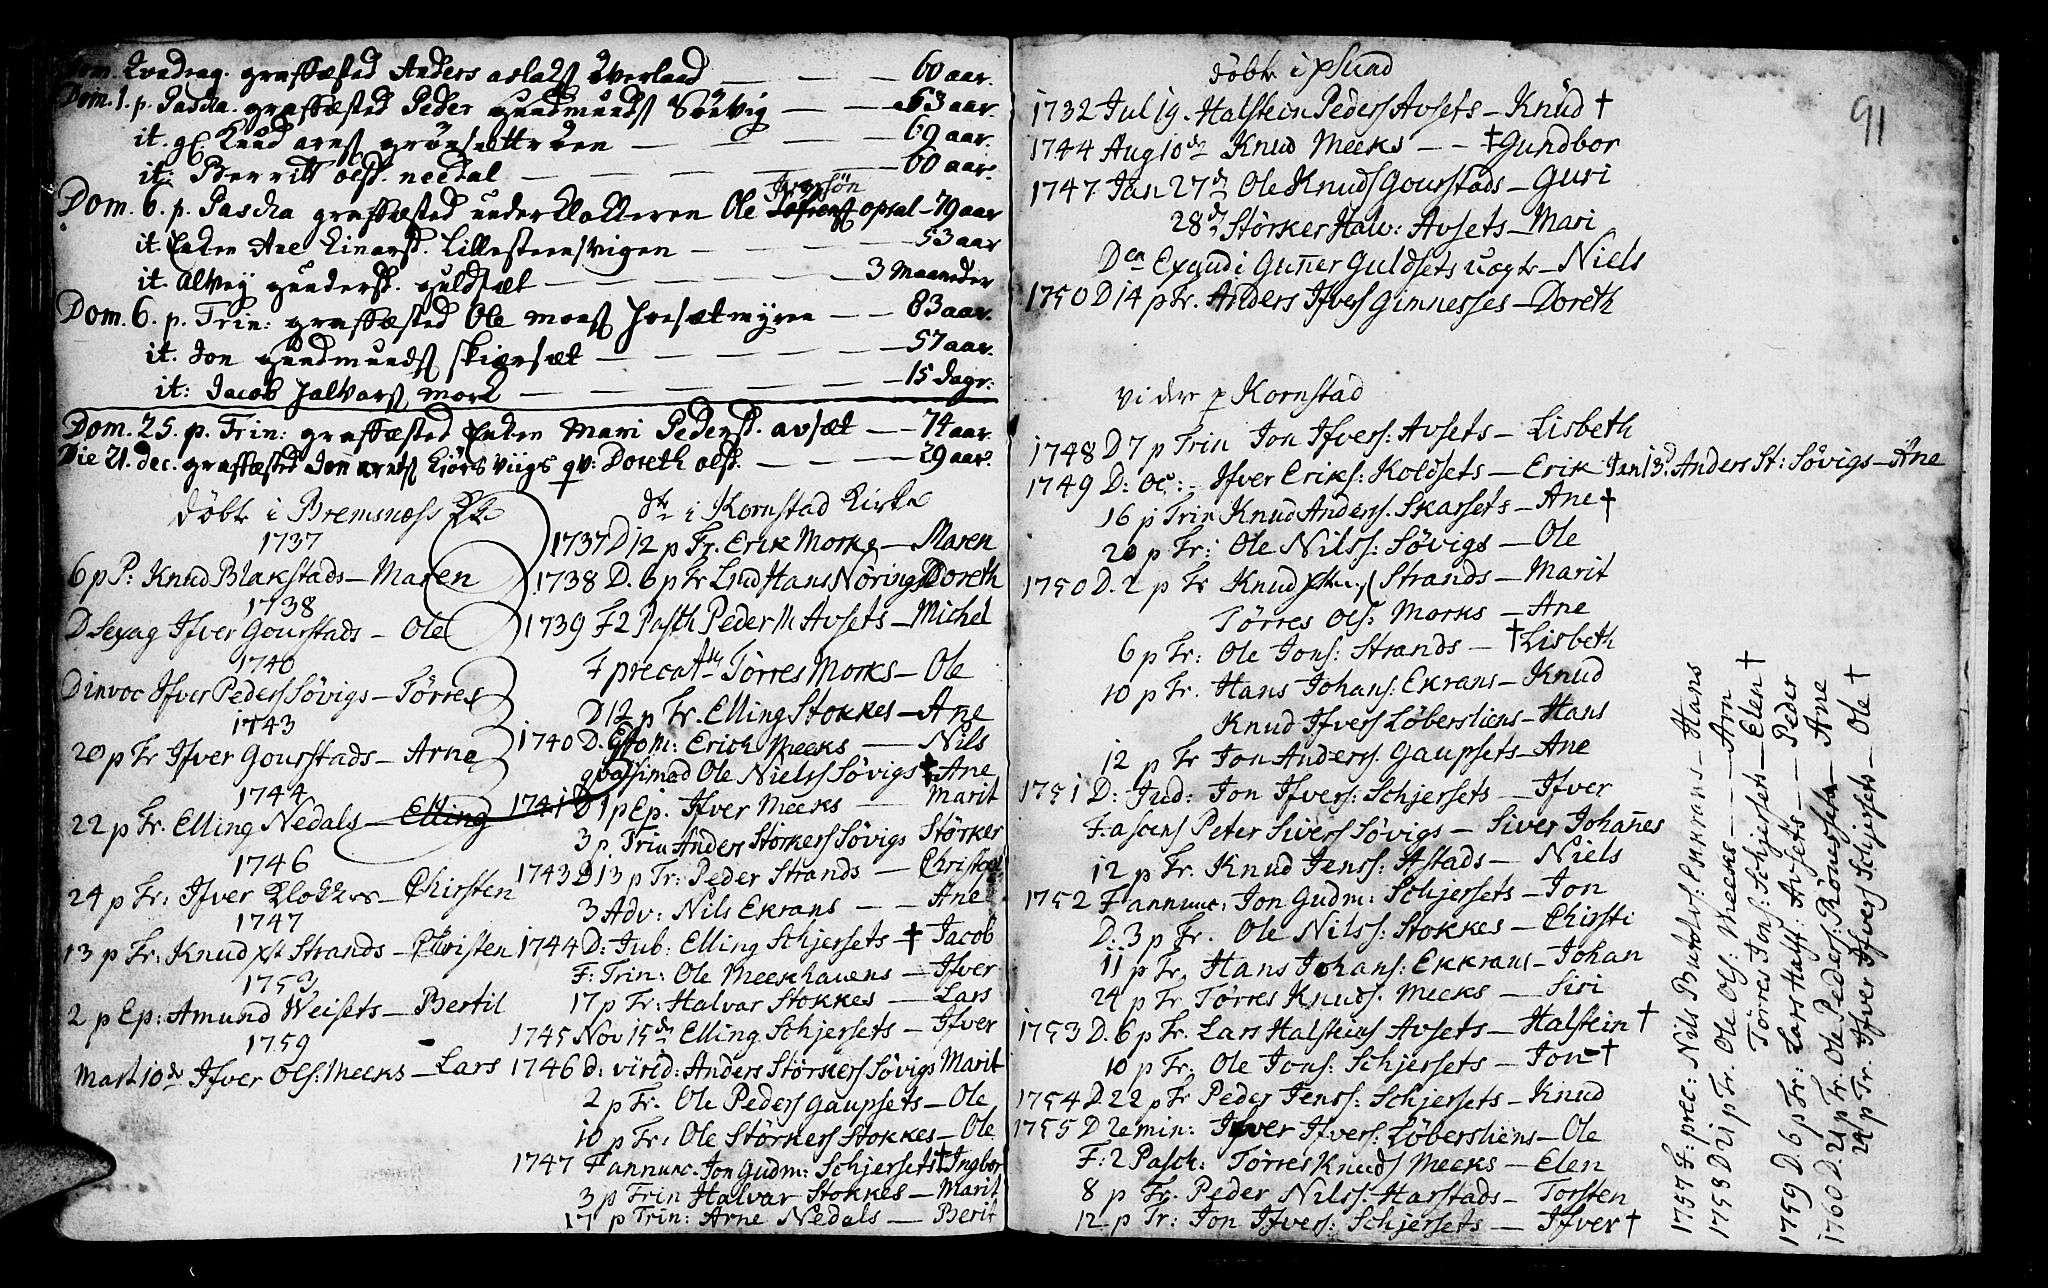 Dom. Qvadrag. graffæsted Anders aslaks överland — — — 60 aar.
Dom. 1. p. Pascha. graffæsted Peder Gundmunds Sörvig — — 63 aar.
it. Knud arns grönsettröen — — — 69 aar.
it: Berritt ols. needal — — — 60 aar.
Dom. 6. p. Pascha graffæsted underklokkeren Ole Iversön opsal — 79 aar
it. Enken Ane Einarsd. Lillesteensvigen — — 53 aar
it. alvey gundersd. guldsæt — — 3 Maaneder
Dom. 6. p. Trin: graffæsted Ole mons Joesætmyren — — 83 aar.
it. Jon gundmunds skiersæt — — — 57 aar.
it: Jacob Halvars morch — — — 15 dage:
Dom. 25. p. Trin: graffæsted Enken Mari Pedersd. avsæt — — 74 aar.
Die 21. dec. graffæsted Jon arnts Kiörsviigs qv: Doreth olsd. — — 29 aar.
döbt i Bremsness
1737
6 p P: Knud Blakstads — Maren
1738
D Sexag Ifver Gourstads — Ole
1740
D invoc Ifver Peders Søvigs — Tørres
1743
20 p Tr Ifver Gourstads — Arne
1744
22 p Tr. Elling Nedals — Elling
1746
24 p Tr: Ifver Klokkers — Chirsten
1747
13 p Tr: Knud Strands — Christen
1753
2 p Ep: Amund Weisets — Bertil
1759
Mart 10de Ifver Ols: Meeks — Lars
i Kornstad Kirke
1737 D 12 p Tr. Erik Morks — Maren
1738 D. 6 p Tr Lud Hans Nørings Doreth
1739 F 2 Pasch Peder M Avsets — Michel
F precat Tørres Morks — Ole
D 12 p Tr. Elling Stokkes — Ane
1740 D. Estom: Erich Meeks — Nils
qvasimod Ole Niels Søvigs † Ane
1741 D 1 p Ep. Ifver Meeks — Marit
3 p Trin Anders Størkers Søvigs Størker
1743 D 13 p Tr: Peder Strands —
3 Adv: Nils Ekrans — — Ane
1744 D: Jub: Elling Schjersets — † Jacob
F: Trin: Ole Meekhauens — Ifver
17 p Tr: Halvar Stokkes — Lars
1745 Nov 15de Elling Schjersets — Ifver
1746 d: virid: Anders Størkers Søvigs Marit
2 p Tr. Ole Peders Gaupsets — Ole
10 p Tr: Ole Størkers Stokkes — Ole
1747 F annunc. Jon Gudm: Schjersets † Ingbor
3 p Trin Halvar Stokkes — Marit
17 p Trin: Arne Nedals — Berit
91
döbt i
1732 Jul 19. Halstein Peders Avsets — Knud †
1744 Aug 10de Knud Meeks — — † Gundbor
1747 Jan 27d Ole Knuds Gourstads — Guri
28d Størker Halv: Avsets — Mari
Den Exaudi Gunner Guldsets — Niels
1750 D 14 p Tr. Anders Ifvers Gimnesses — Doreth
videre p Kornstad
1748 D 7 p Trin Jon Ifvers: Avsets — Lisbeth
1749 D: Oc: — Ifver Eriks: Koldsets — Erik Jan 13d. Anders St: Søvigs — Ane
16 p Trin Knud Anders. Skarsets — Ane †
20 p Tr: Ole Nilss: Søvigs — Ole
1750 D. 2 p Tr Knud Strands — Marit
Tørres Ols: Morks — Ane
6 p Tr: Ole Jons: Strands — † Lisbeth
10 p Tr. Hans Johans: Ekrans — Knud
Knud Ifvers Løbersliens — Hans
12 p Tr Jon Anders. Gaupsets — Ane
1751 D: Jud: Jon Ifvers: Schjersets — Ifver
F. ascens Peter Sivers Søvigs — Siver Johannes
12 p Tr. Knud Jenss: Astads — Niels
1752 F annunc: Jon Gudm: Schjersets — Jon
D: 3 p Tr. Ole Nilss: Stokkes — Chirsti
11 p Tr. Hans Johans: Ekkrans — Johan
24 p Tr Tørres Knuds. Meeks — Siri
1753 D. 6 p Tr. Lars Halsteins Avsets — Halstein †
10 p Tr: Ole Jons: Schjersets — Jon †
1754 D 22 p Tr Peder Jenss: Schjersets — Knud
1755 D Remin: Ifver Ifvers: Løbersliens — Ole
F: 2 Pasch: Tørres Knuds Meeks — Elen
8 p Tr. Peder Nilss: Harstads — Torsten
12 p Tr: Jon Ifvers: Schjersets — Ifver †
1757 F: prec: Nils Botolvs: Ekkrans — Hans
1758 D 21 p Tr. Ole Ols: Meeks — — Arn
Tørres Jons: Schjersets — Elen †
1759 D. 6 p Tr: Lars Halst: Avsets — — Peder
1760 D. 21 p Tr. Ole Peders: Rönesets — Ane
24 p Tr. Ifver Ifvers Schjersets — Ole †